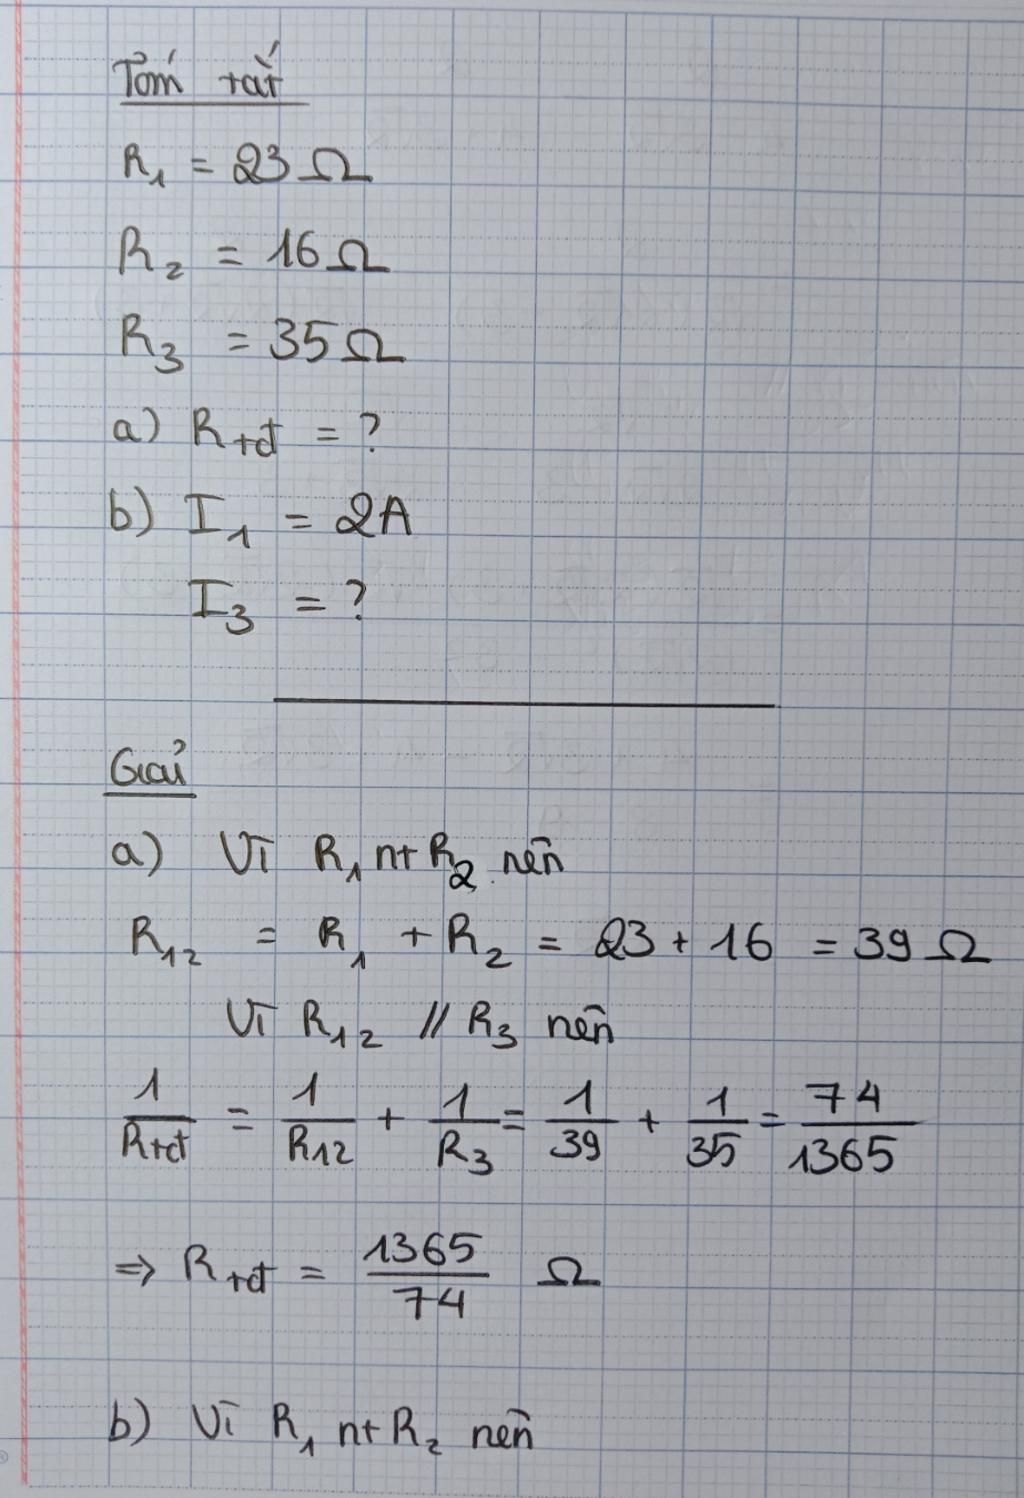 Tóm tắt
R₁ = 23 Ω
R₂ = 16 Ω
R₃ = 35 Ω
a) Rtđ = ?
b) I₁ = 2A
I₃ = ?
Giải
a) Vì R₁ nt R₂ nên
R₁₂ = R₁ + R₂ = 23 + 16 = 39 Ω
Vì R₁₂ // R₃ nên
1/Rtđ = 1/R₁₂ + 1/R₃ = 1/39 + 1/35 = 74/1365
⇒ Rtđ = 1365/74 Ω
b) Vì R₁ nt R₂ nên